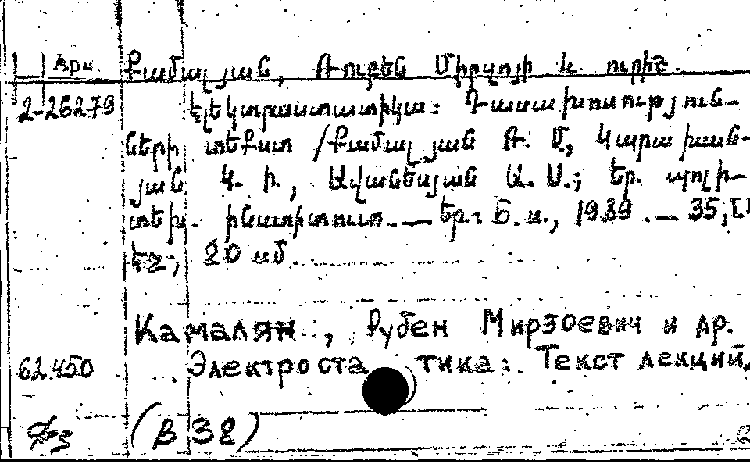 Արմ. Քամալյան, Ռուբեն Միրզոյի և ուրիշ.
2-26279 Էլեկտրաստատիկա: Դասախոսություն-
ների տեքստ /Քամալյան Ռ. Մ., Կարախան-
յան Կ. Ի., Ավանեսյան Ա. Ս.; Եր. պոլի-
տեխ. ինստիտուտ. — Եր.: Բ. ի., 1989. — 35,[1]
էջ; 20 սմ.
Камалян, Рубен Мирзоевич и др.
62.450 Электростатика: Текст лекций.
(В 38)